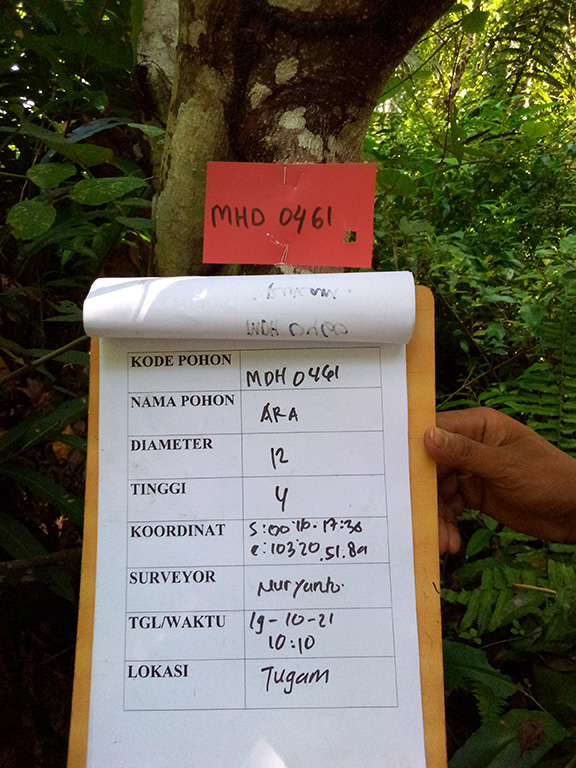 MHD 0461
KODE POHON MDH 0461
NAMA POHON ARA
DIAMETER 12
TINGGI 4
KOORDINAT S:00 16. 17:36
e:103 20.51.89
SURVEYOR Nuryanto.
TGL/WAKTU 19-10-21
10:10
LOKASI Tugam